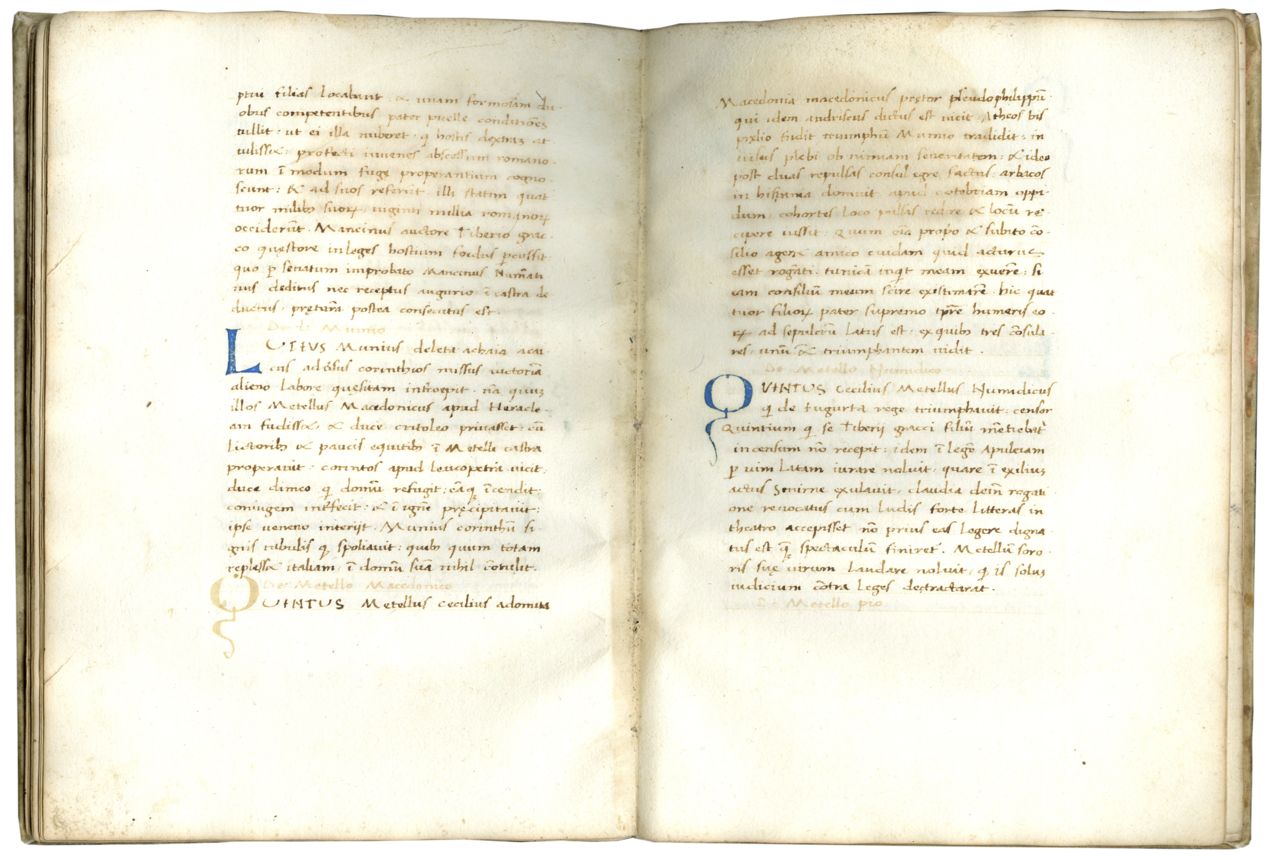 ptui filias locabant. & unam formosam du-
obus competentibus pater puelle conditionẽs
tullit. ut ei illa nuberet. q̃ hostis dextras at
tulissȝ. protecti iuvenes abscessum romano-
rum ĩ modum fuge properantium cogno-
scunt: & ad suos referũt. illi statim quat
tuor milibȝ suoꝝ. viginti millia romanoꝝ
occiderũt. Mancinus auctore Tiberio grac-
co questore in leges hostium foedus pcussit.
quo p̱ senatum improbato Mancinus Numãti
nis deditus nec receptus augurio ĩ castra de
ductus. pręturã postea consecutus est.
De L Mumio
LUITUS Mumius deleta achaia acu-
cus adṽsus corinthios missus victoriã
alieno labore quesitam intrcepit. nã quuȝ
illos Metellus Macedonicus apud Heracle-
am fudissȝ. & duce critoleo privasset. cũ
Lictoribȝ & paucis equitibȝ ĩ Metelli castra
properavit. corintos apud Leucopetrã vicit.
duce dimco q̃ domũ refugit: eãq̧ ĩcendit:
coniugem intfecit: & ĩ ignẽ pręcipitavit:
ipse veneno interijt. Mumius corinthũ si-
gnis tabulis q̧ spoliavit: quibȝ quum totam
replessȝ italiam, ĩ domũ suã nihil cõtulit.
De Metello Macedonico
QUINTUS Metellus Cecilius a domita
Macedonia macedonicus pretor pseudophilippũ.
qui idem andriscus dictus est vicit. Acheos bis
prelio fudit triumphũ Mumio tradidit: in
visus plebi ob nimiam severitatem: & ideo
post duas repulsas consul egre factus. arbacos
in hispania domuit. apud cotobriam oppi
dum, cohortes loco pulsas redire & locũ re-
cipere iussit. Quum oĩa propo & subito cõ-
silio ageret. amico cuidam quid acturuȝ
esset rogãti. tunicã inqͥt meam exuerẽ: si
eam consilium meum scire existimarẽ. hic quat
tuor filioꝝ pater supremo tpre humeris eo-
ꝝ ad sepulcrũ Latus est. ex quibȝ tres cõsula-
res. unũ & triumphantem vidit.
De Metello Numidico
QUINTUS Cecilius Metellus Numidicus
q̃ de Iugurta rege triumphavit. censor
Quintium q̃ se Tiberij gracci filiũ mẽtiebat͂
in censum nõ recepit: idem ĩ legẽ Apuleiam
p̱ vim Latam iurare noluit. quare ĩ exiliuȝ
actus Smirne exulavit. claudia deĩn rogati
one revocatus cum Ludis forte Litteras in
theatro accepisset nõ prius eas Legere digna-
tus est q̃ȝ spectaculũ finiret. Metellũ soro-
ris suę virum Laudare noluit, q̃ is solus
iudicium cõtra Leges dectractarat.
De Metello pio